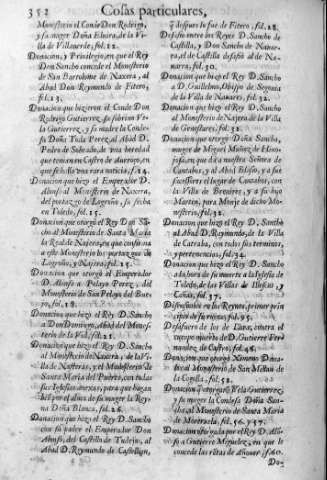 352 Cosas particulares,
Monesterio el Conde Don Rodrigo,
y su muger Doña Elvira, de la Vi
lla de Villaverde, fol. 12.
Donacion, y Privilegio, en que el Rey
Don Sancho concede el Monesterio
de San Bartolome de Naxera, al
Abad Don Raymundo de Fitero,
fol. 23.
Donacion que hizieron el Conde Don
Rodrigo Gutierrez, su sobrino
la Gutierrez, y su madre la Conde-
sa Doña Toda Perez, al Abad D.
Pedro de de una heredad
que tenian en Castro de
que se halla una rara noticia, f. 24.
Donacion que hizo el Emperador D.
Alonso al Monesterio de Naxera,
del portazgo de Logroño, su fecha
en Toledo, fol. 25.
Donacion que otorgò el Rey Don Sā-
cho al Monesterio de Santa Maria
la Real de Naxera, en que confirma
a este Monesterio los portazgos de
Logroño, y Naxera, fol. 25.
Donacion que otorgò el Emperador
D. Alonso a Pelayo Perez, del
Monesterio de San Pelayo del
fol. 28.
Donacion que hizo el Rey D. Sancho
a Don Domingo, Abad del Mones-
terio de la Vid, fol. 25.
Donacion que hizo el Rey D. Sancho
al Monasterio de Naxera, de la Vi-
lla de Nasteras, y el Monesterio de
Santa Maria del Puerto, con todas
sus Iglesias
el por el alma de su muger la Rey
na Doña Blanca, fol. 26.
Donacion que hizo el Rey D. Sancho
con su padre el Emperador Don
Alonso, del Castillo de Tudejen, al
Abad D. Raymundo de Castellon,
q̃ despues lo fue de Fitero, fol. 28.
Desafio entre los Reyes D. Sancho de
Castilla, y Don Sancho de Navar-
ra, el de Castilla desafio al de Na-
varra, fol. 30.
Donacion que hizo el Rey D. Sancho
a D. Guillelmo, Obispo de Segovia
de la Villa de Navares, fol. 32.
Donacion que hizo el Rey D. Sancho
al Monesterio de Najera de la Villa
de fol. 32.
Donacion que otorgò Doña Sancha,
muger de Miguel Muñoz de Hinoj-
josa, en que dà a nuestra Señora de
Cantabos, y al Abad Blasio, y a sus
sucessores el lugar de Cantabos, con
la Villa de y a su hijo
Martin, para Monje de dicho Mo-
nesterio, fol. 32.
Donacion que hizo el Rey D. Sancho
al Abad D. Raymundo, de la Villa
de Carraba, con todos sus terminos,
y pertenencias, fol. 34.
Donacion que hizo el Rey D. Sancho
a la hora de su muerte a la Iglesia de
Toledo, de las Villas de Illescas, y
fol. 37.
en los Reynos, princi-
pios de su reyno, fol. 95.
Desafuero de los de Lara, contra el
cuerpo muerto de D. Gutierre Fer-
nandez de Castro, fol. 46.
Donacion que otorgò Ximeno
al Monesterio de San Millan de
la Cogolla, fol. 52.
Donacion q̃ otorgarō Vela Gutierrez,
y su muger la Condesa Doña San-
cha, al Monesterio de Santa Maria
de Moreruela, fol. 56. y 57.
Donacion otorgada por el Rey D. Alō-
so a Gutierre Miguelez, en que le
concede las villas de fol. 60.
Do-